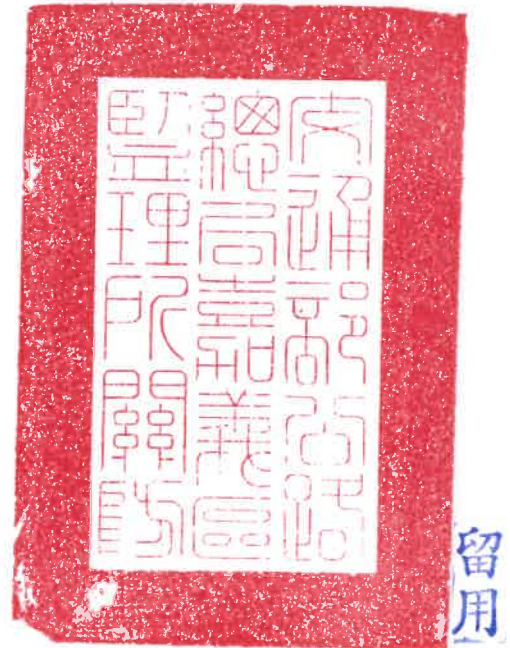 交通部公路
總局嘉義區
監理所關防
留用